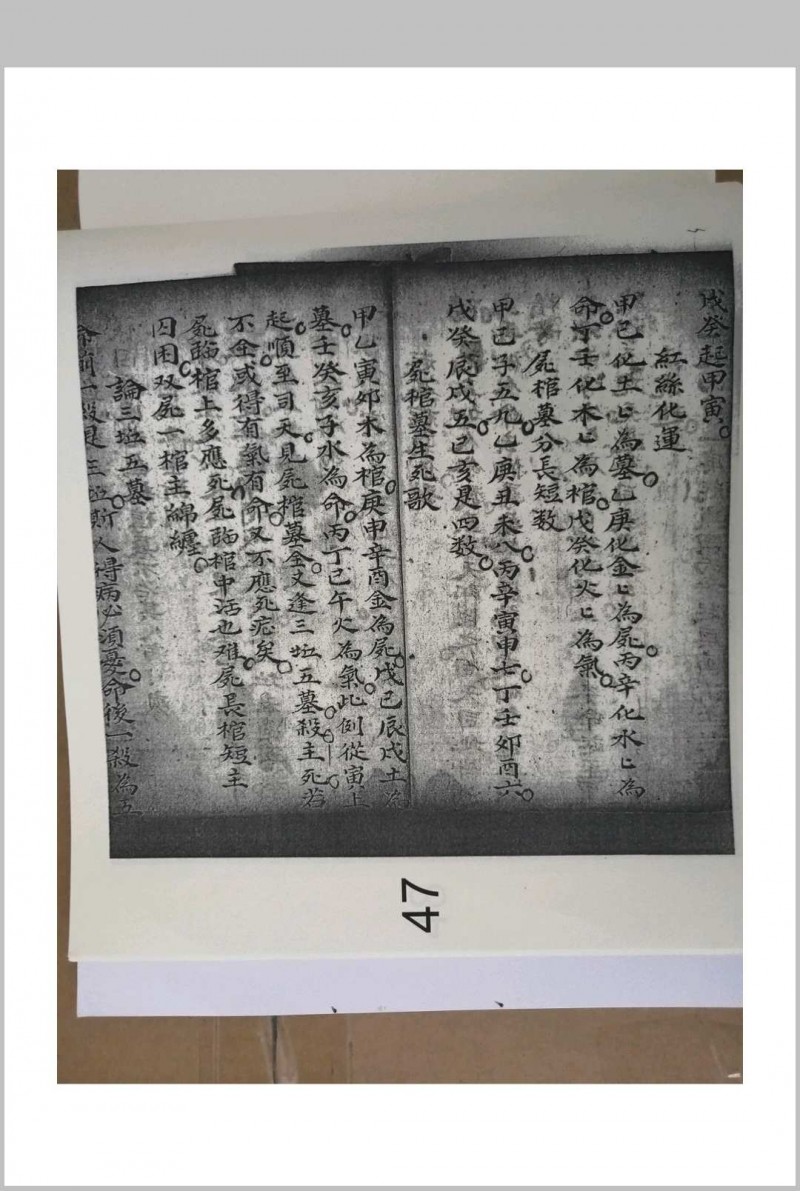 戊癸起甲寅。
紅絲化運
甲己化土〻為墓。乙庚化金〻為屍。丙辛化水〻為
命。丁壬化木〻為棺。戊癸化火〻為氣。
屍棺墓分長短数
甲己子五九。乙庚丑未八。丙辛寅申七。丁壬卯酉六。
戊癸辰戌五。己亥是四数。
屍棺墓生死歌
甲乙寅卯木為棺。庚申辛酉金為屍。戊己辰戌土為
墓。壬癸亥子水為命。丙丁巳午火為氣。此例從寅上
起。順至司天。見屍棺墓全。又逢三坵五墓殺。主死。若
不全。或得有氣有命。又不應死庇矣。
屍臨棺上多應死。屍臨棺中活也难。屍長棺短主
囚困。双屍一棺主綿纏。
論三坵五墓
命前一殺是三坵。斯人得病必須憂。命後一殺為五
47